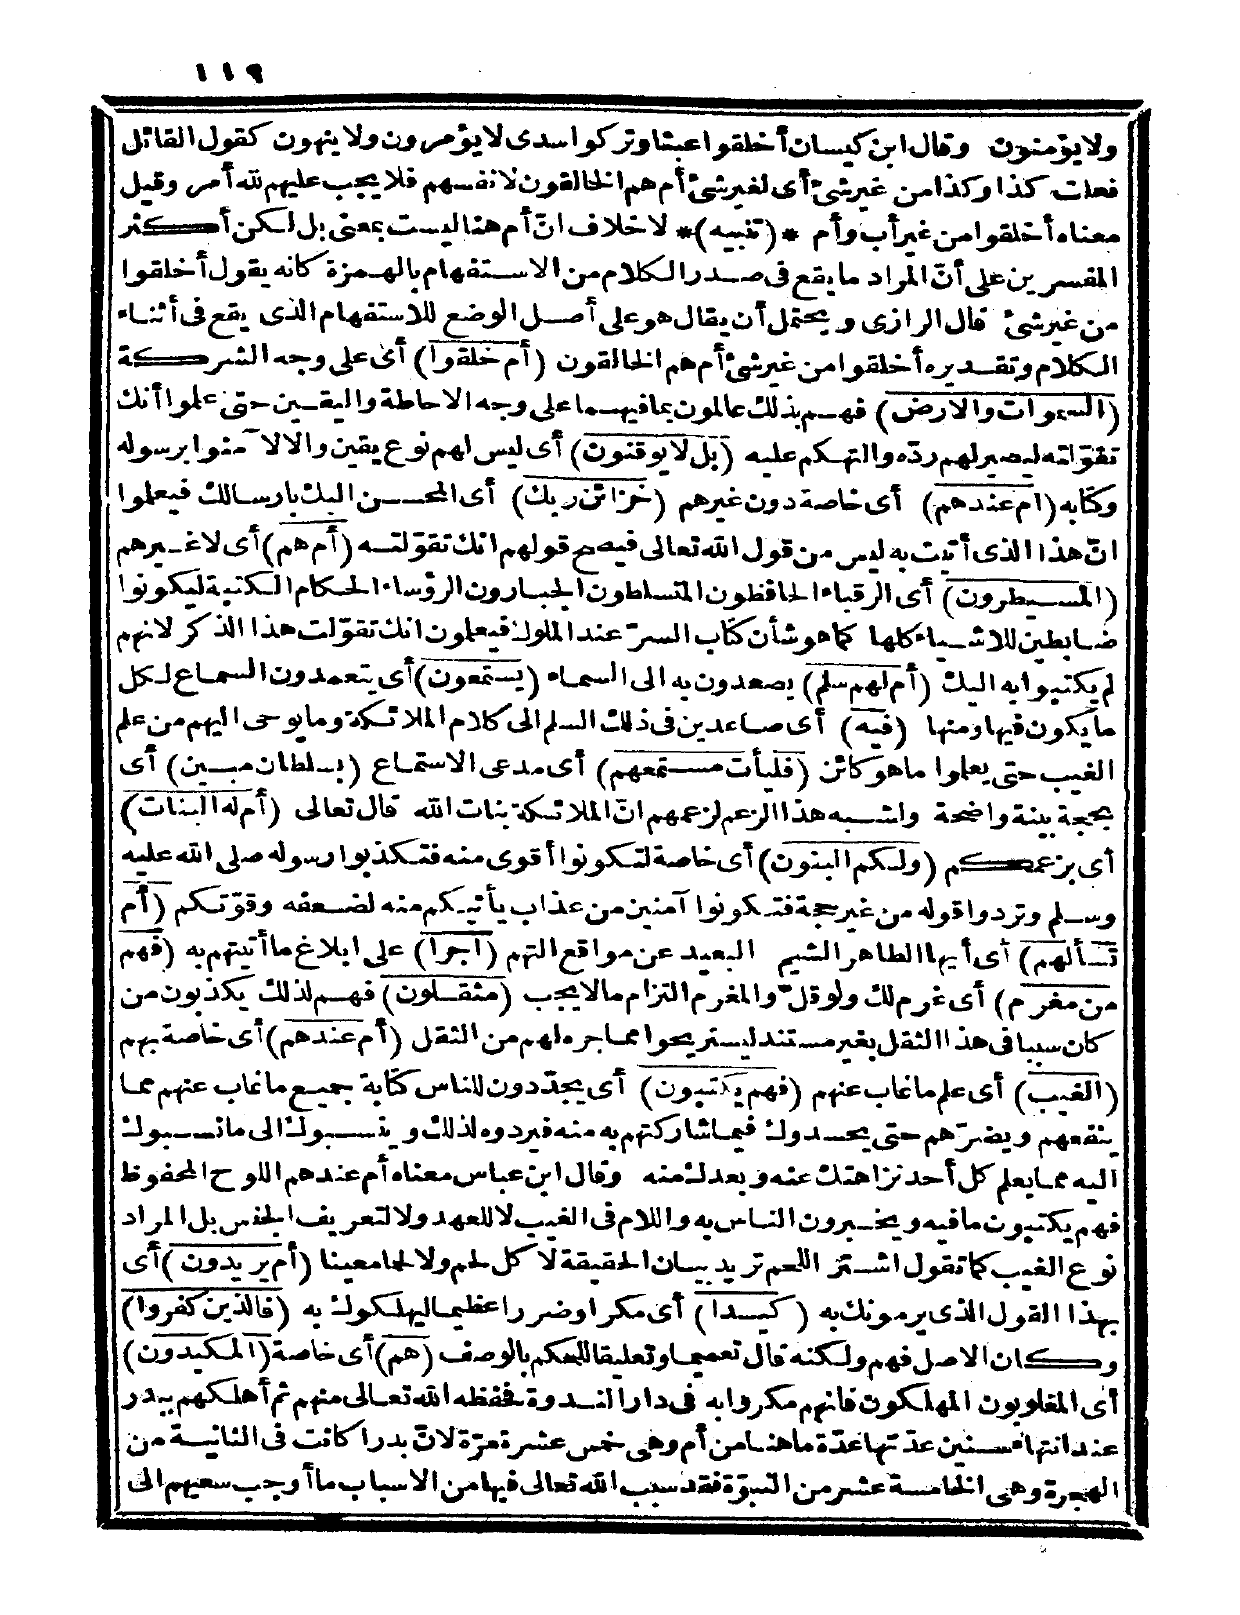 ١١٩
ولا يؤمنون وقال ابن كيسان أخلقوا عبثا وتركوا سدى لا يؤمرون ولا ينهون كقول القائل
فعلت كذا وكذا من غير شئ أى لغير شئ أم هم الخالقون لانفسهم فلا يجب عليهم لله أمر وقيل
معناه أخلقوا من غير أب وأم *(تنبيه)* لا خلاف انّ أم هنا ليست بمعنى بل لكن أكثر
المفسرين على أنّ المراد ما يقع فى صدر الكلام من الاستفهام بالهمزة كانه يقول أخلقوا
من غير شئ قال الرازى ويحتمل أن يقال هو على أصل الوضع للاستفهام الذى يقع فى أثناء
الكلام وتقديره أخلقوا من غير شئ أم هم الخالقون (أم خلقوا) أى على وجه الشركة
(السموات والارض) فهم بذلك عالمون بما فيهما على وجه الاحاطة واليقين حتى علموا أنك
تقوّلته ليصير لهم ردّه والتهكم عليه (بل لا يوقنون) أى ليس لهم نوع يقين والا لآمنوا برسوله
وكتابه (ام عندهم) أى خاصة دون غيرهم (خزائن ربك) أى المحسن اليك بارسالك فيعلموا
انّ هذا الذى أتيت به ليس من قول الله تعالى فيصح قولهم انك تقوّلته (أم هم) أى لا غيرهم
(المسيطرون) أى الرقباء الحافظون المتسلطون الجبارون الرؤساء الحكام الكتبة ليكونوا
ضابطين للاشياء كلها كما هو شأن كتاب السرّ عند الملوك فيعلمون انك تقوّلت هذا الذكر لانهم
لم يكتبوا به اليك (أم لهم سلم) يصعدون به الى السماء (يستمعون) أى يتعمدون السماع لكل
ما يكون فيها ومنها (فيه) أى صاعدين فى ذلك السلم الى كلام الملائكة وما يوحى اليهم من علم
الغيب حتى يعلموا ما هو كائن (فليأت مستمعهم) أى مدعى الاستماع (بسلطان مبين) أى
بحجة بينة واضحة واشبه هذا الزعم لزعمهم انّ الملائكة بنات الله قال تعالى (أم له البنات)
أى بزعمكم (ولكم البنون) أى خاصة لتكونوا أقوى منه فتكذبوا رسوله صلى الله عليه
وسلم وتردوا قوله من غير حجة فتكونوا آمنين من عذاب يأتيكم منه لضعفه وقوّتكم (أم
تسألهم) أى أيها الطاهر الشيم البعيد عن مواقع التهم (اجرا) على ابلاغ ما أتيتهم به (فهم
من مغرم) أى غرم لك ولو قلّ والمغرم التزام ما لا يجب (مثقلون) فهم لذلك يكذبون من
كان سببا فى هذا الثقل بغير مستند ليستريحوا مما جره لهم من الثقل (أم عندهم) أى خاصة بهم
(الغيب) أى علم ما غاب عنهم (فهم يكتبون) أى يجدّدون للناس كتابة جميع ما غاب عنهم مما
ينفعهم ويضرّهم حتى يحسدوك فيما شاركتهم به منه فيردوه لذلك وينسبوك الى ما نسبوك
اليه مما يعلم كل أحد نزاهتك عنه وبعدك منه وقال ابن عباس معناه أم عندهم اللوح المحفوظ
فهم يكتبون ما فيه ويخبرون الناس به واللام فى الغيب لا للعهد ولا لتعريف الجنس بل المراد
نوع الغيب كما تقول اشتر اللحم تريد بيان الحقيقة لا كل لحم ولا لحما معينا (أم يريدون) أى
بهذا القول الذى يرمونك به (كيدا) أى مكرا وضررا عظيما ليهلكوك به (فالذين كفروا)
وكان الاصل فهم ولكنه قال تعميما وتعليقا للحكم بالوصف (هم) أى خاصة (المكيدون)
أى المغلوبون المهلكون فانهم مكروا به فى دار الندوة فحفظه الله تعالى منهم ثم أهلكهم ببدر
عند انتهاء سنين عدتها عدّة ما هنا من أم وهى خمس عشرة مرّة لانّ بدرا كانت فى الثانية من
الهجرة وهى الخامسة عشر من النبوّة فقد سبب الله تعالى فيها من الاسباب ما أوجب سعيهم الى